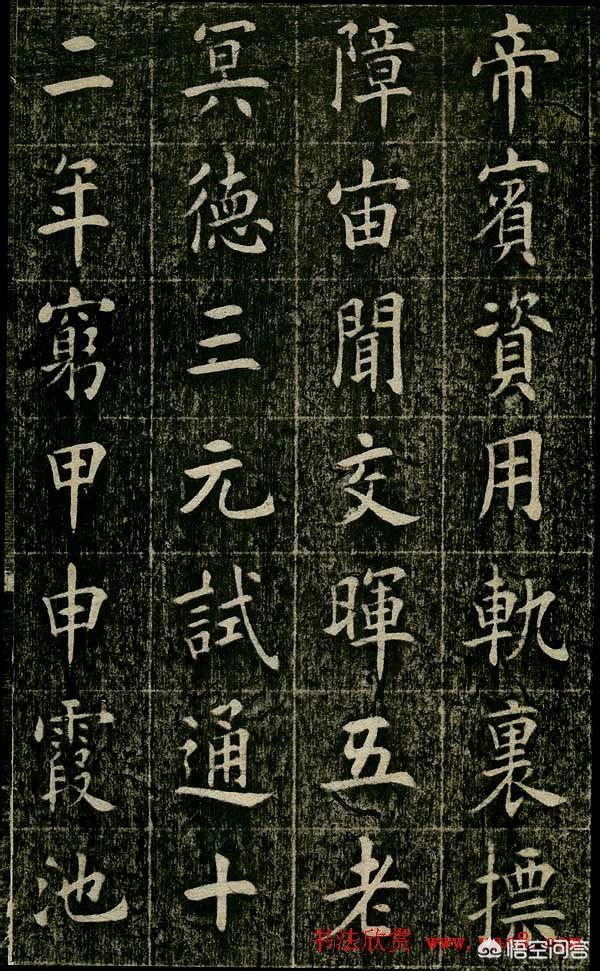 帝賓資用軌裏摽
障宙聞交暉五老
冥德三元試通十
二年窮甲申霞池
书法欣赏
悟空问答